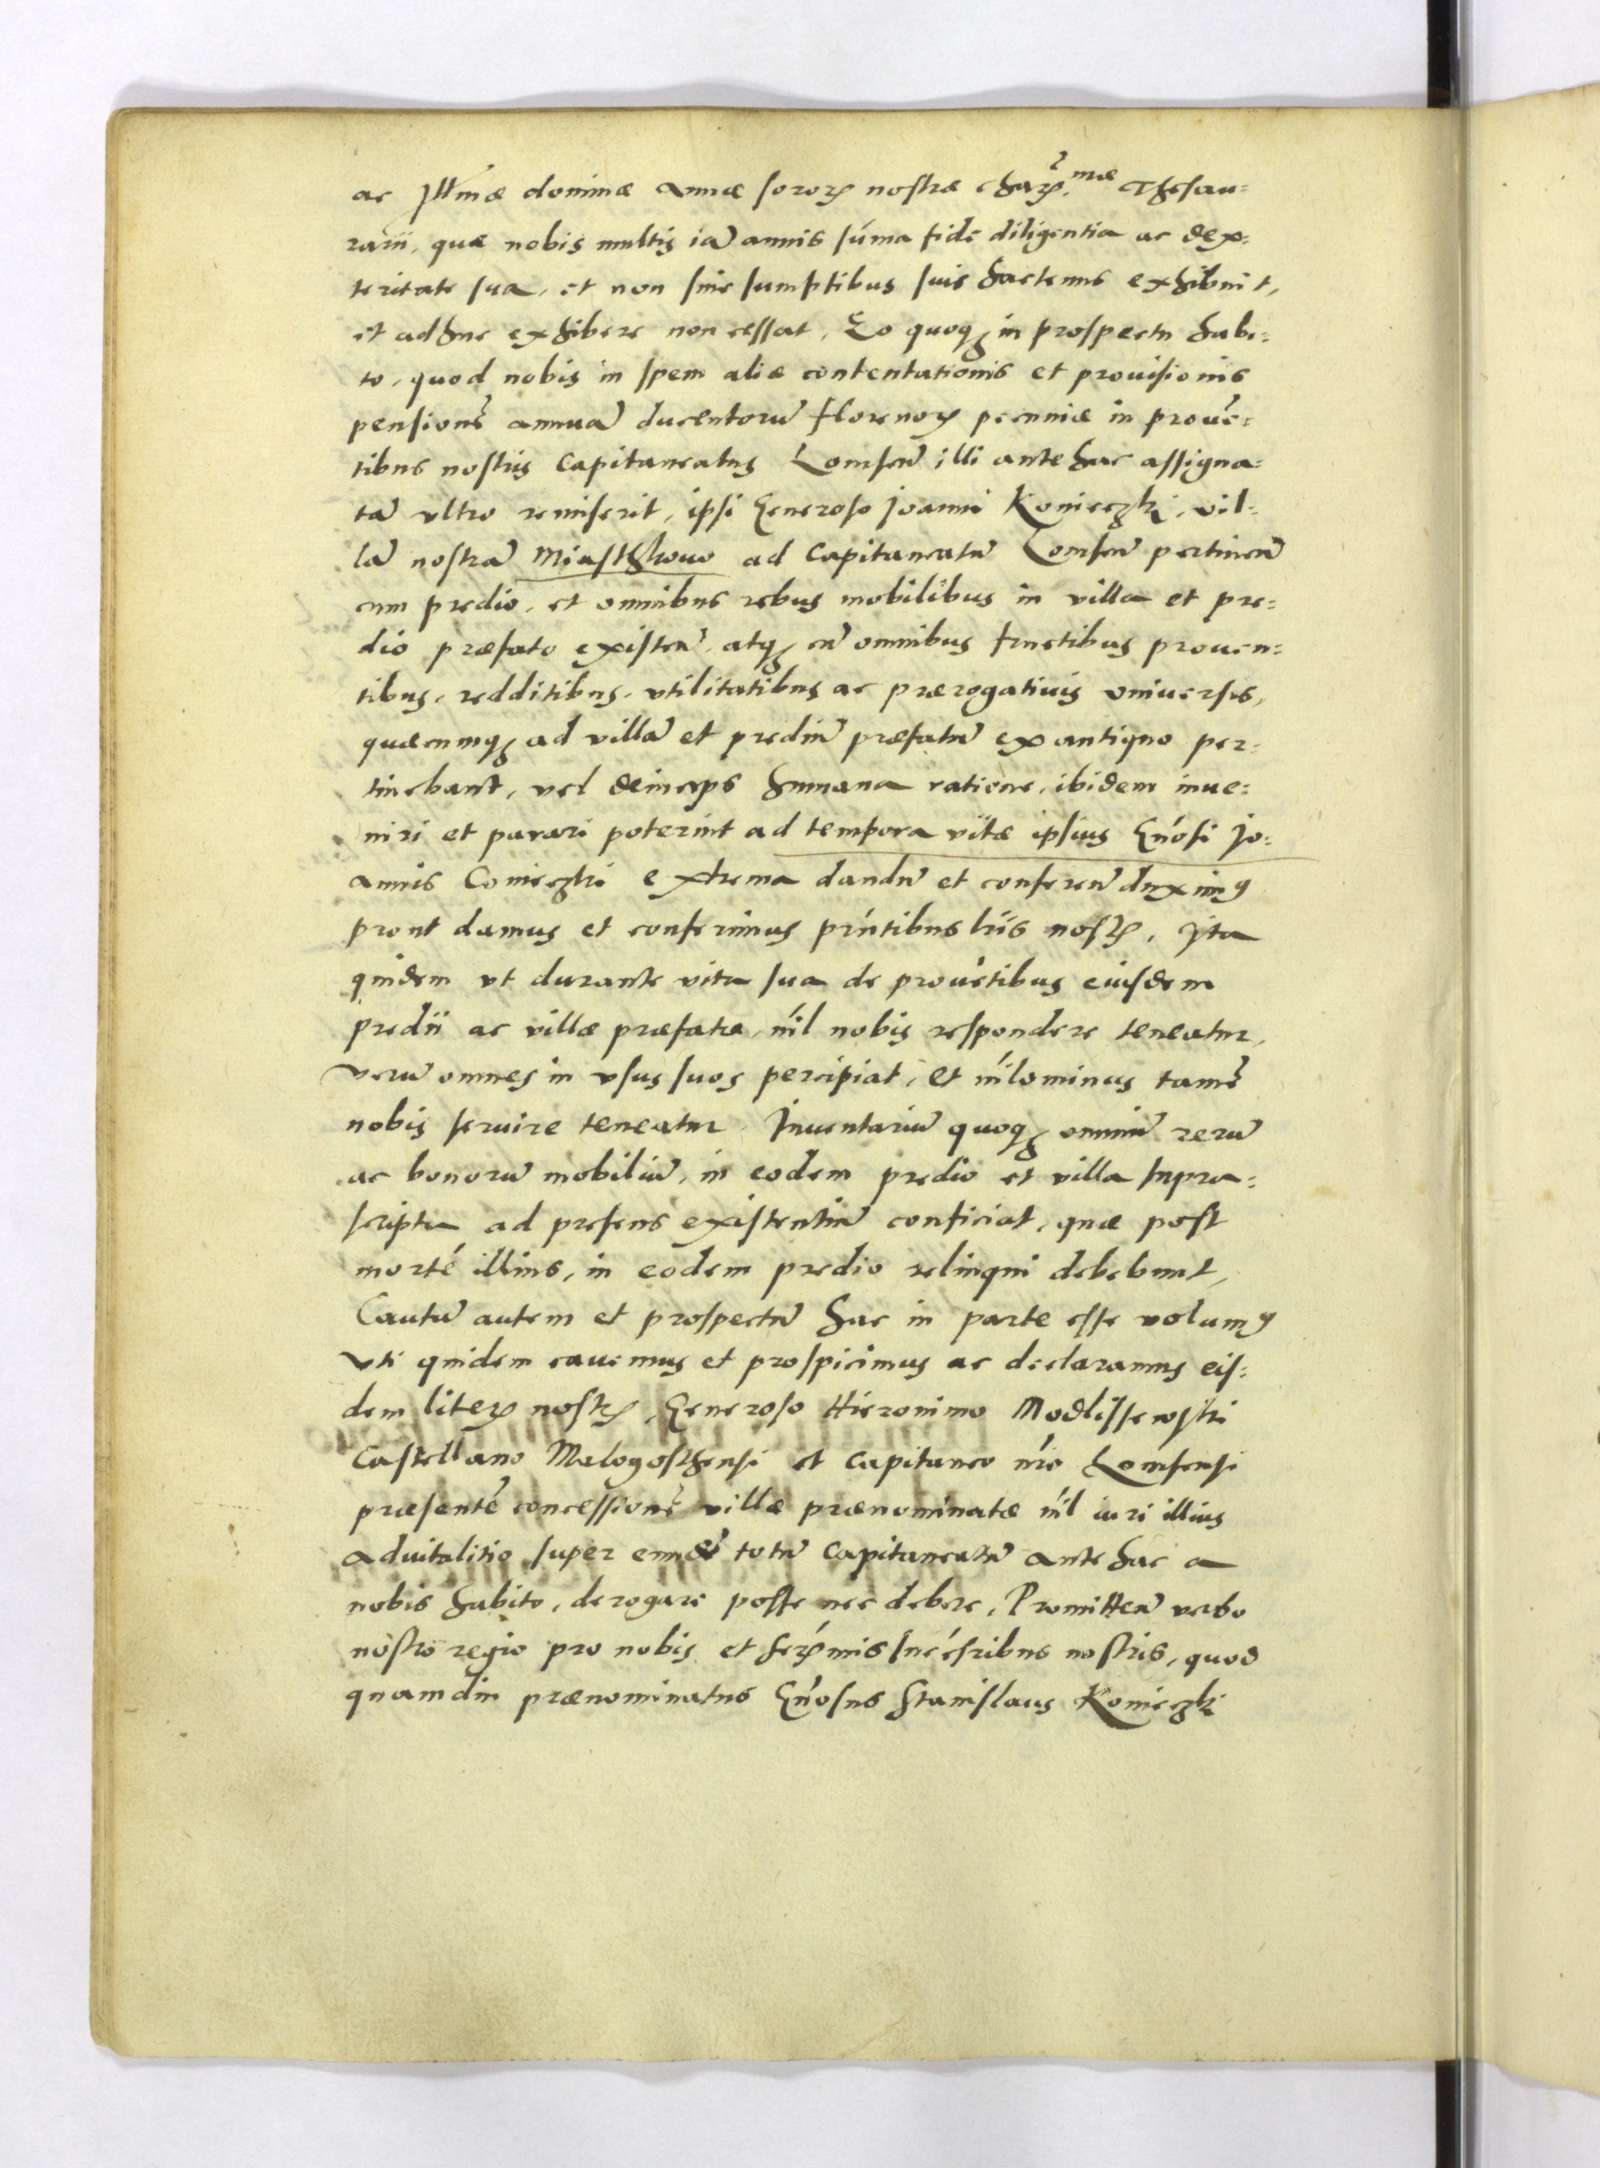 ac Illmæ dominæ Annæ sororꝭ nostræ charꝭ.mæ Thesau=
rarii, quæ nobis multis iã annis sũma fide diligentia ac dex=
teritate sua, et non sine sumptibus suis hactenus exhibuit,
et adhuc exhibere non cessat, Eo quoqꝫ in prospectu habi=
to, quod nobis in spem aliæ contentationis et prouisionis
pensionẽ annuã ducentorũ florenorꝭ pecuniæ in prouẽ=
tibus nostris Capitaneatus Lomsen̄ illi ante hac assigna=
tã vltro remiserit, ipsi Generoso Joanni Konieczki, vil=
lã nostrã Miasthkowo ad Capitaneatũ Lomsen̄ pertinen̄
cum predio, et omnibus rebus mobilibus in villa et pre=
dio præfato existen̄, atqꝫ cũ omnibus fructibus prouen=
tibus, redditibus, vtilitatibus ac prærogatiuis vniuersis,
quæcunqꝫ ad villã et prediũ præfatũ ex antiquo per=
tinebant, vel deinceps humana ratione, ibidem inue=
niri et parari poterint ad tempora vitæ ipsius Gn̄osi Jo=
annis Conieczki extrema dandũ et conferen̄ duximꝰ
prout damus et conferimus prn̄tibus lr̄is nostrꝭ, Ita
quidem vt durante vita sua de prouẽtibus eiusdem
predii ac villæ præfatæ, nı̄l nobis respondere teneatur,
verũ omnes in vsus suos percipiat, et nı̄lominus tamẽ
nobis seruire teneatur. Inuentariũ quoqꝫ omniũ rerũ
ac bonorũ mobiliũ, in eodem predio et villa supra=
scripta ad presens existentiũ conficiat, quæ post
mortẽ illius, in eodem predio relinqui debebunt,
Cautũ autem et prospectũ hac in parte esse volumꝰ
vti quidem cauemus et prospicimus ac declaramus eis=
dem literꝭ nostrꝭ, Generoso Hieronimo Modlissewski
Castellano Malogosthensi et Capitaneo nr̄o Lomsensi
præsentẽ concessionẽ villæ prænominatæ nı̄l iuri illius
aduitalitio super eundẽ totũ Capitaneatũ ante hac a
nobis habito, derogare posse nec debere, Promitten̄ verbo
nostro regio pro nobis et serꝭmis succ̄sribus nostris, quod
quamdiu prænominatus Gn̄osus Stanislaus Konieczki